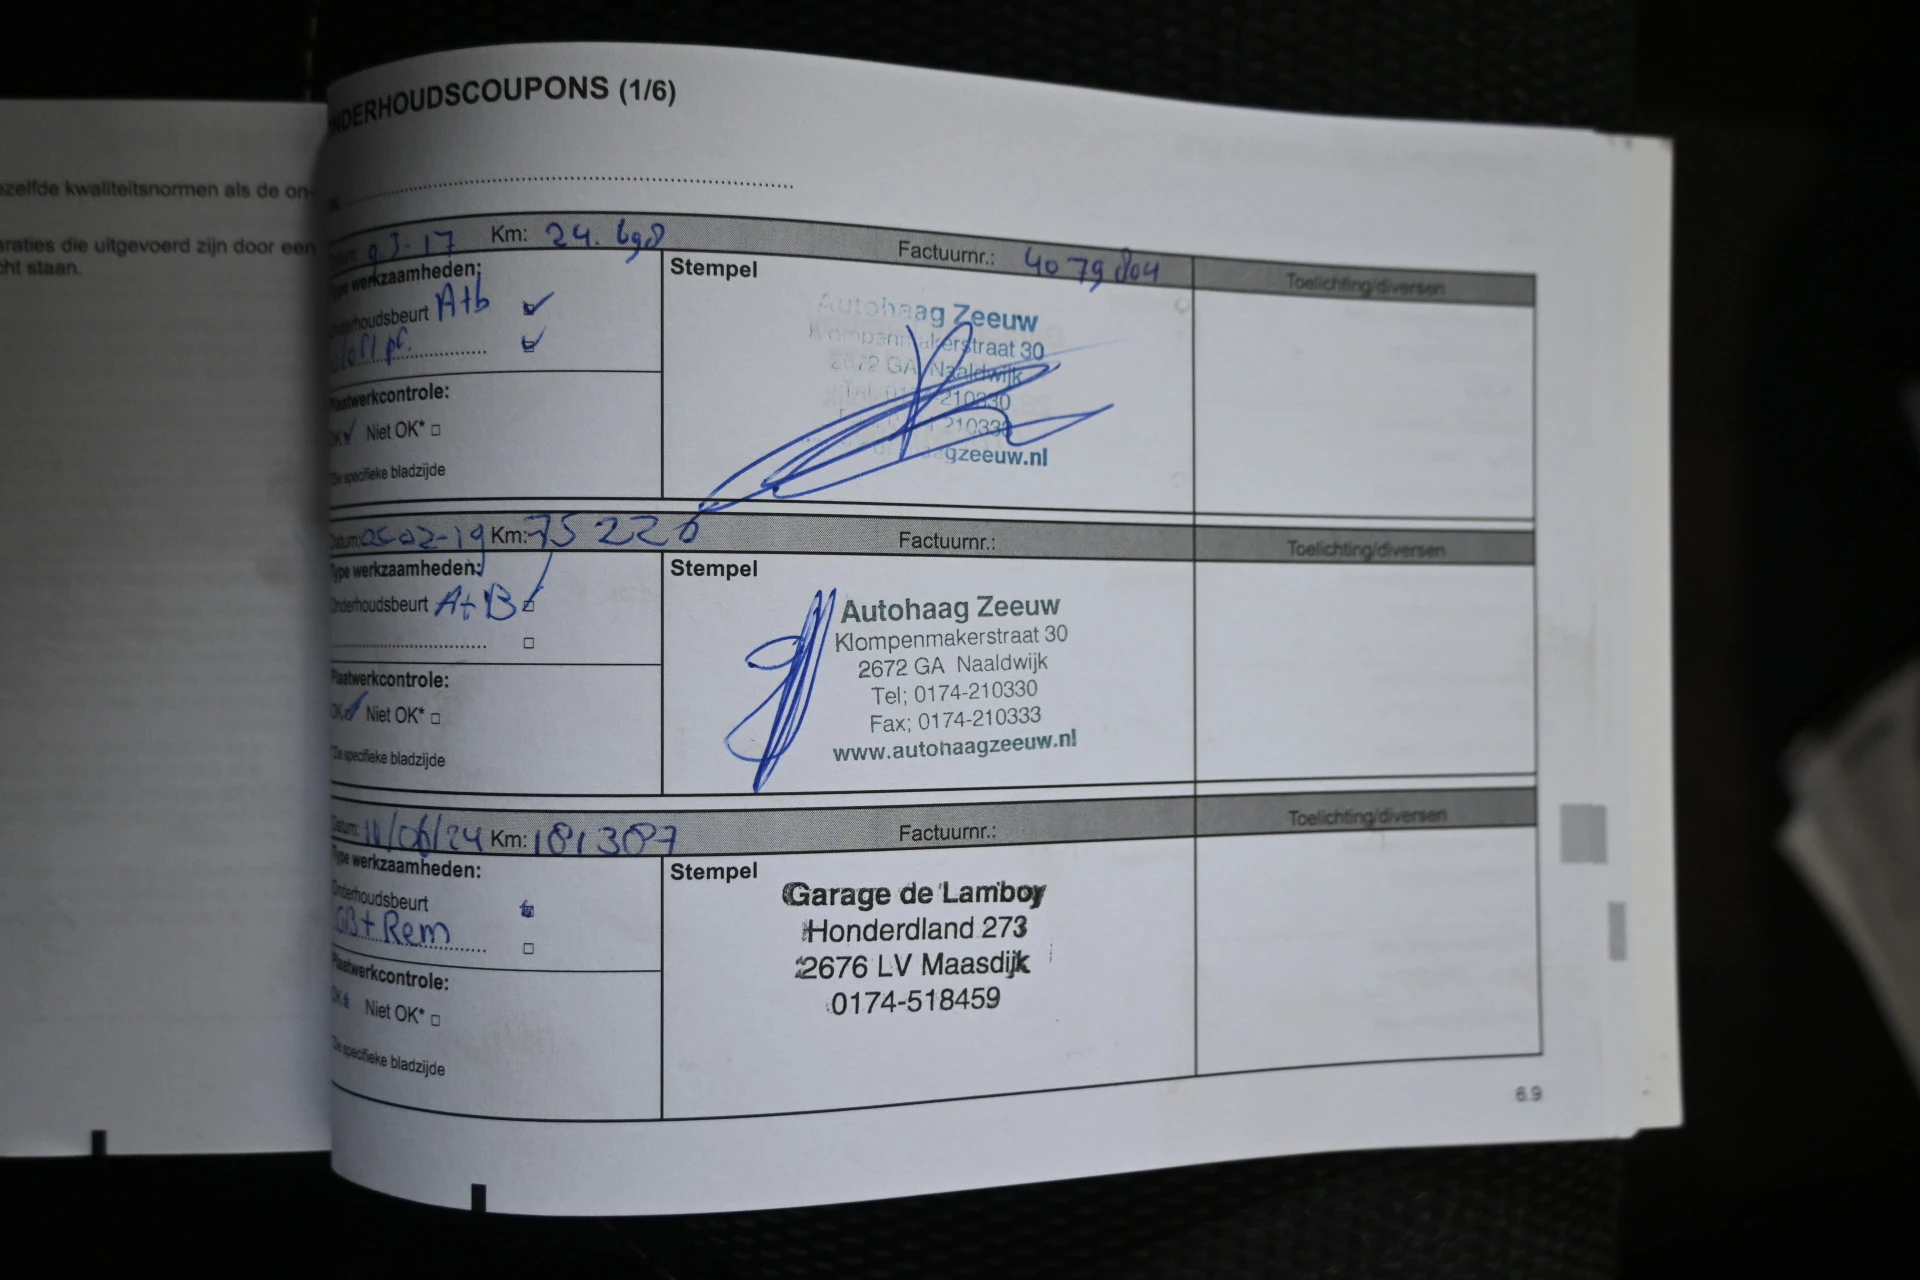 ezelfde kwaliteitsnormen als de on-
araties die uitgevoerd zijn door een
cht staan.
ONDERHOUDSCOUPONS (1/6)
Datum: 9-3-17 Km: 24.698 Factuurnr.: 4079804 Toelichting/diversen
Type werkzaamheden:
Onderhoudsbeurt A+b
Stempel
Autohaag Zeeuw
Klompenmakerstraat 30
2672 GA Naaldwijk
Tel; 0174-210330
210333
agzeeuw.nl
Plaatwerkcontrole:
OK Niet OK*
*Zie specifieke bladzijde
Datum: 05-02-19 Km: 75226 Factuurnr.: Toelichting/diversen
Type werkzaamheden:
Onderhoudsbeurt A+B
Stempel
Autohaag Zeeuw
Klompenmakerstraat 30
2672 GA Naaldwijk
Tel; 0174-210330
Fax; 0174-210333
www.autohaagzeeuw.nl
Plaatwerkcontrole:
OK Niet OK*
*Zie specifieke bladzijde
Datum: 11/06/24 Km: 181307 Factuurnr.: Toelichting/diversen
Type werkzaamheden:
Onderhoudsbeurt
GB+Rem
Stempel
Garage de Lamboy
Honderdland 273
2676 LV Maasdijk
0174-518459
Plaatwerkcontrole:
OK Niet OK*
*Zie specifieke bladzijde
6.9